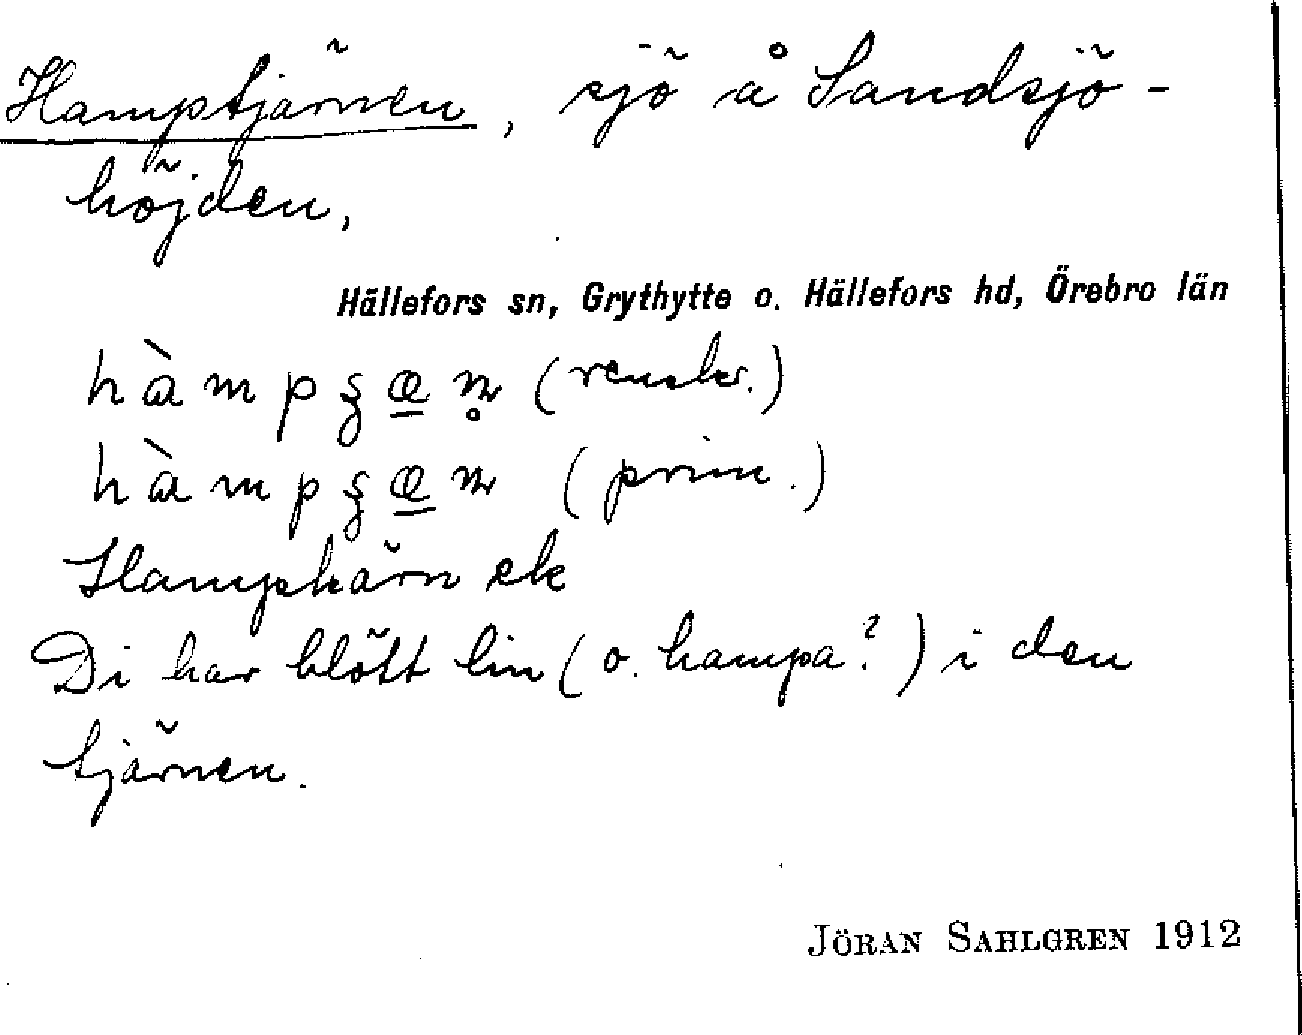 Hamptjärnen, sjö å Sandsjö-
höjden,
Hällefors sn, Grythytte o. Hällefors hd, Örebro län
hàmpʂæ̲n̥ (renskr.)
hàmpʂæ̲n (prim.)
Hampkärn ek
Di har blött lin (o. hampa?) i den
tjärnen.
JÖRAN SAHLGREN 1912